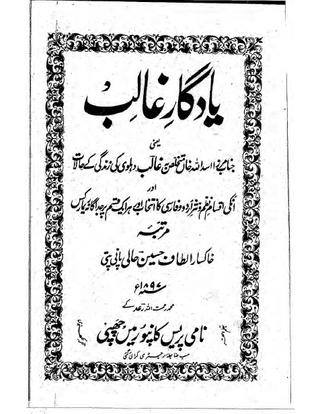 یادگار غالب
یعنی
جناب مرزا اسد اللہ خان المتخلص بہ غالب دہلوی کی زندگی کے حالات
اور
انکی اقسام نظم و نثر اردو و فارسی کا انتخاب اور ہر ایک قسم پر جداگانہ ریمارکس
مرتبہ
خاکسار الطاف حسین حالی پانی پتی
۱۸۹۷ء
محمد رحمت اللہ رعد کے
نامی پریس کانپور میں چھپی